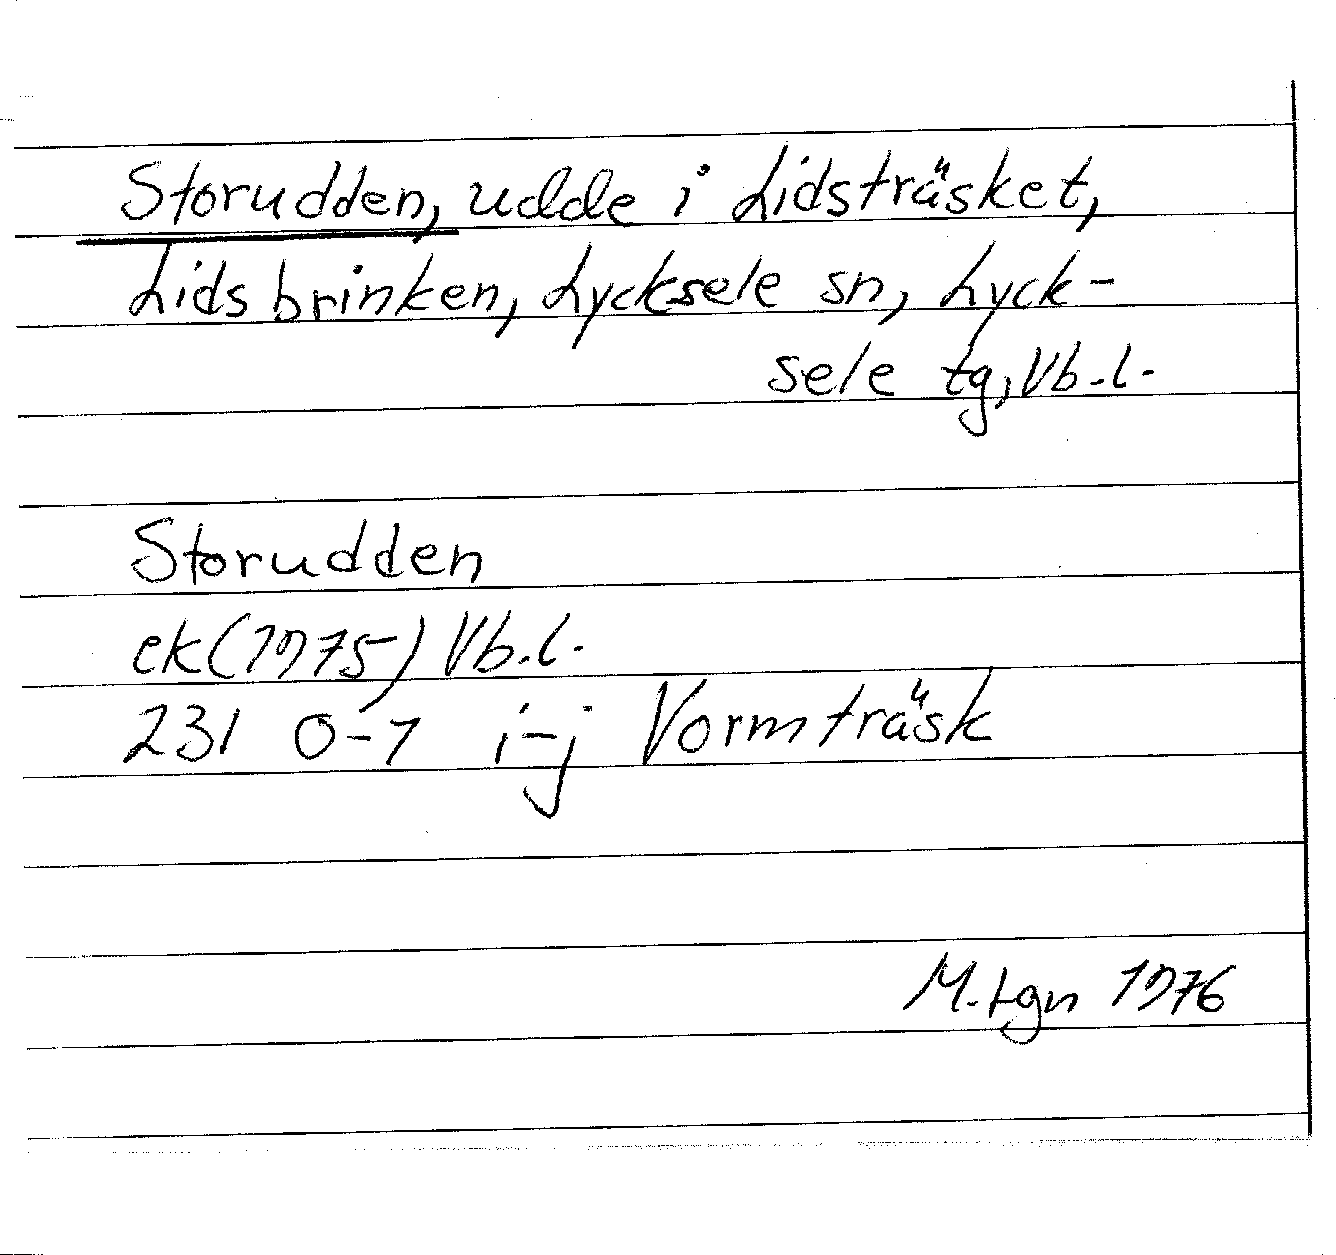 Storudden, udde i Lidsträsket,
Lidsbrinken, Lycksele sn, Lyck-
sele tg, Vb.l.
Storudden
ek(1975) Vb.l.
231 0-1 i-j Vormträsk
M.tgn 1976